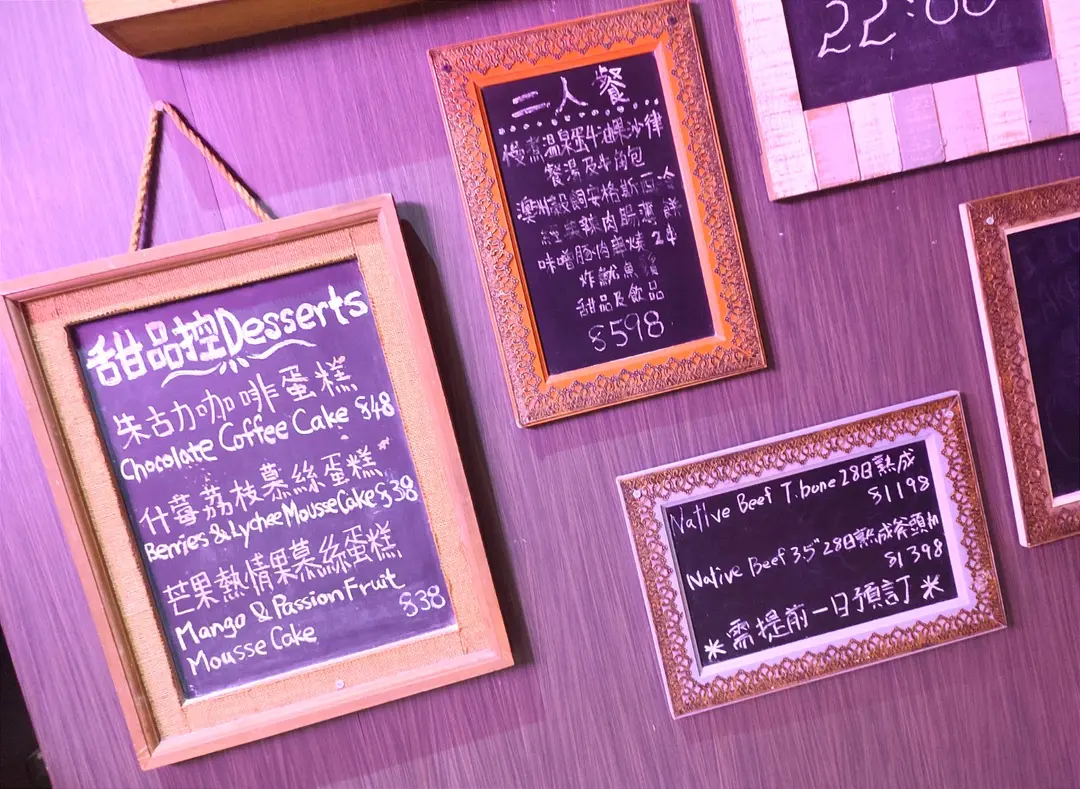 甜品控Desserts
朱古力咖啡蛋糕
Chocolate Coffee Cake $48
什莓荔枝慕絲蛋糕
Berries & Lychee Mousse Cake $38
芒果熱情果慕絲蛋糕
Mango & Passion Fruit
Mousse Cake $38
二人餐
慢煮溫泉蛋牛油果沙律
餐湯及牛角包
澳州穀飼安格斯西冷
辣肉腸薄餅
味噌豚肉串燒 2串
炸魷魚鬚
甜品及飲品
$598
22:00
Native Beef T.bone 28日熟成
$1198
Native Beef 3.5" 28日熟成斧頭扒
$1398
*需提前一日預訂*